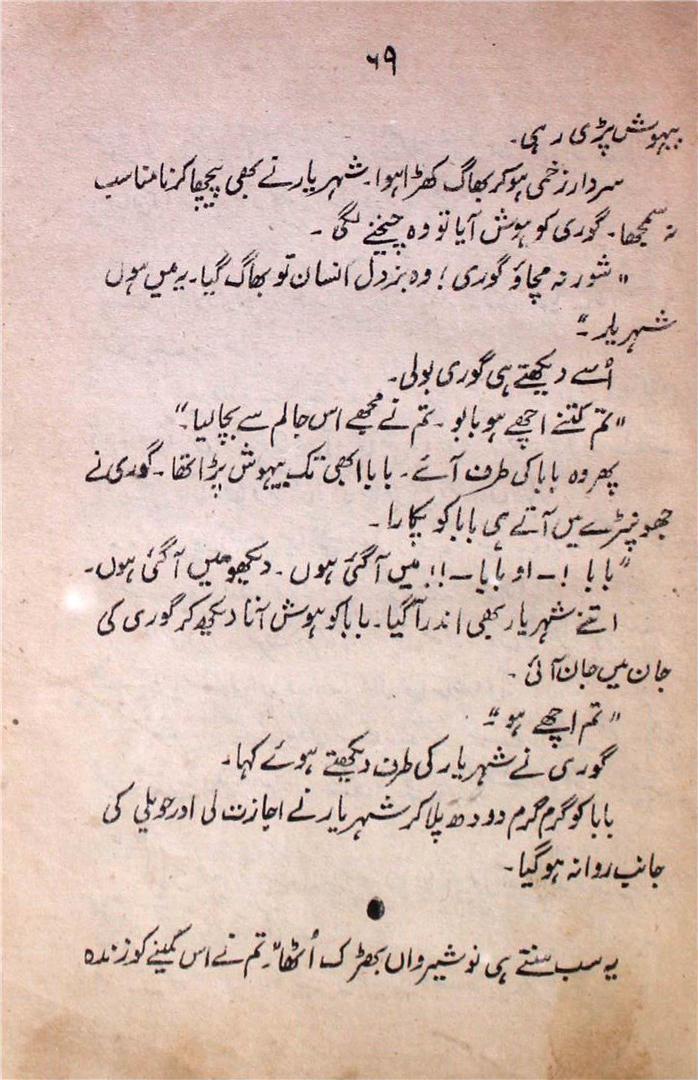 ۶۹
بیہوش پڑی رہی۔
سردار زخمی ہو کر بھاگ کھڑا ہوا۔ شہریار نے بھی پیچھا کرنا مناسب
نہ سمجھا۔ گوری کو ہوش آیا تو وہ چیخنے لگی ۔
"شور نہ مچاؤ گوری ! وہ بزدل انسان تو بھاگ گیا۔ یہ میں ہوں
شہریار ۔"
اُسے دیکھتے ہی گوری بولی۔
"تم کتنے اچھے ہو بابو ۔ تم نے مجھے اس جالم سے بچالیا۔"
پھر وہ بابا کی طرف آئے۔ بابا ابھی تک بیہوش پڑا تھا۔ گوری نے
جھونپڑے میں آتے ہی بابا کو پکارا۔
"بابا ! ۔ او بابا ۔!! میں آ گئی ہوں ۔ دیکھو میں آ گئی ہوں۔
اتنے شہریار بھی اندر آ گیا۔ بابا کو ہوش آتا دیکھ کر گوری کی
جان میں جان آئی ۔
"تم اچھے ہو ۔"
گوری نے شہریار کی طرف دیکھتے ہوئے کہا۔
بابا کو گرم گرم دودھ پلا کر شہریار نے اجازت لی اور حویلی کی
جانب روانہ ہو گیا۔
●
یہ سب سنتے ہی نوشیرواں بھڑک اُٹھا "تم نے اس کمینے کو زندہ